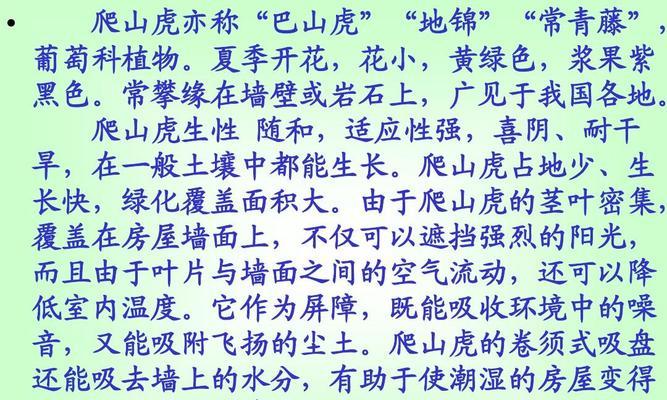 • 爬山虎亦称“巴山虎”“地锦”“常青藤”，
葡萄科植物。夏季开花，花小，黄绿色，浆果紫
黑色。常攀缘在墙壁或岩石上，广见于我国各地。
爬山虎生性 随和，适应性强，喜阴、耐干
旱，在一般土壤中都能生长。爬山虎占地少、生
长快，绿化覆盖面积大。由于爬山虎的茎叶密集，
覆盖在房屋墙面上，不仅可以遮挡强烈的阳光，
而且由于叶片与墙面之间的空气流动，还可以降
低室内温度。它作为屏障，既能吸收环境中的噪
音，又能吸附飞扬的尘土。爬山虎的卷须式吸盘
还能吸去墙上的水分，有助于使潮湿的房屋变得